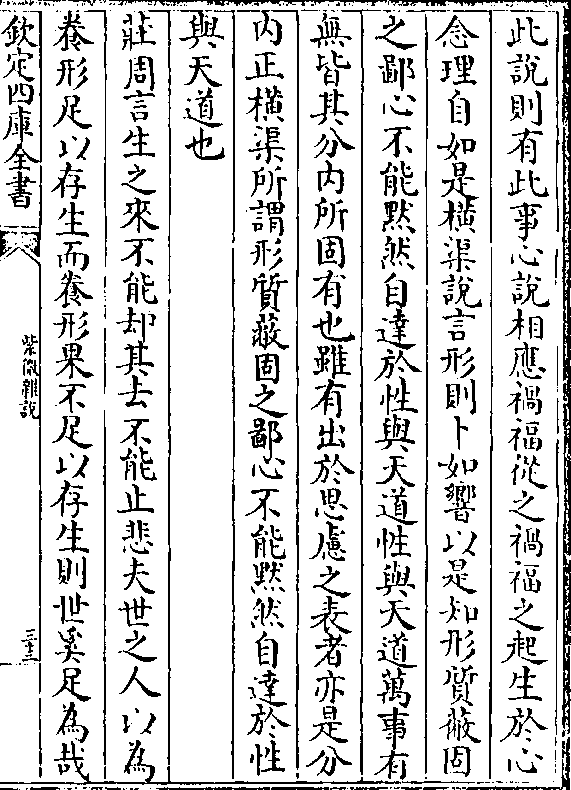 此說則有此事心說相應禍福從之禍福之起生於心
念理自如是橫渠說言形則卜如響以是知形質蔽固
之鄙心不能黙然自達於性與天道性與天道萬事有
無皆其分内所固有也雖有出於思慮之表者亦是分
内正橫渠所謂形質蔽固之鄙心不能黙然自達於性
與天道也
莊周言生之來不能却其去不能止悲夫世之人以為
養形足以存生而養形果不足以存生則世奚足為哉
欽定四庫全書
紫微雜說
三十三